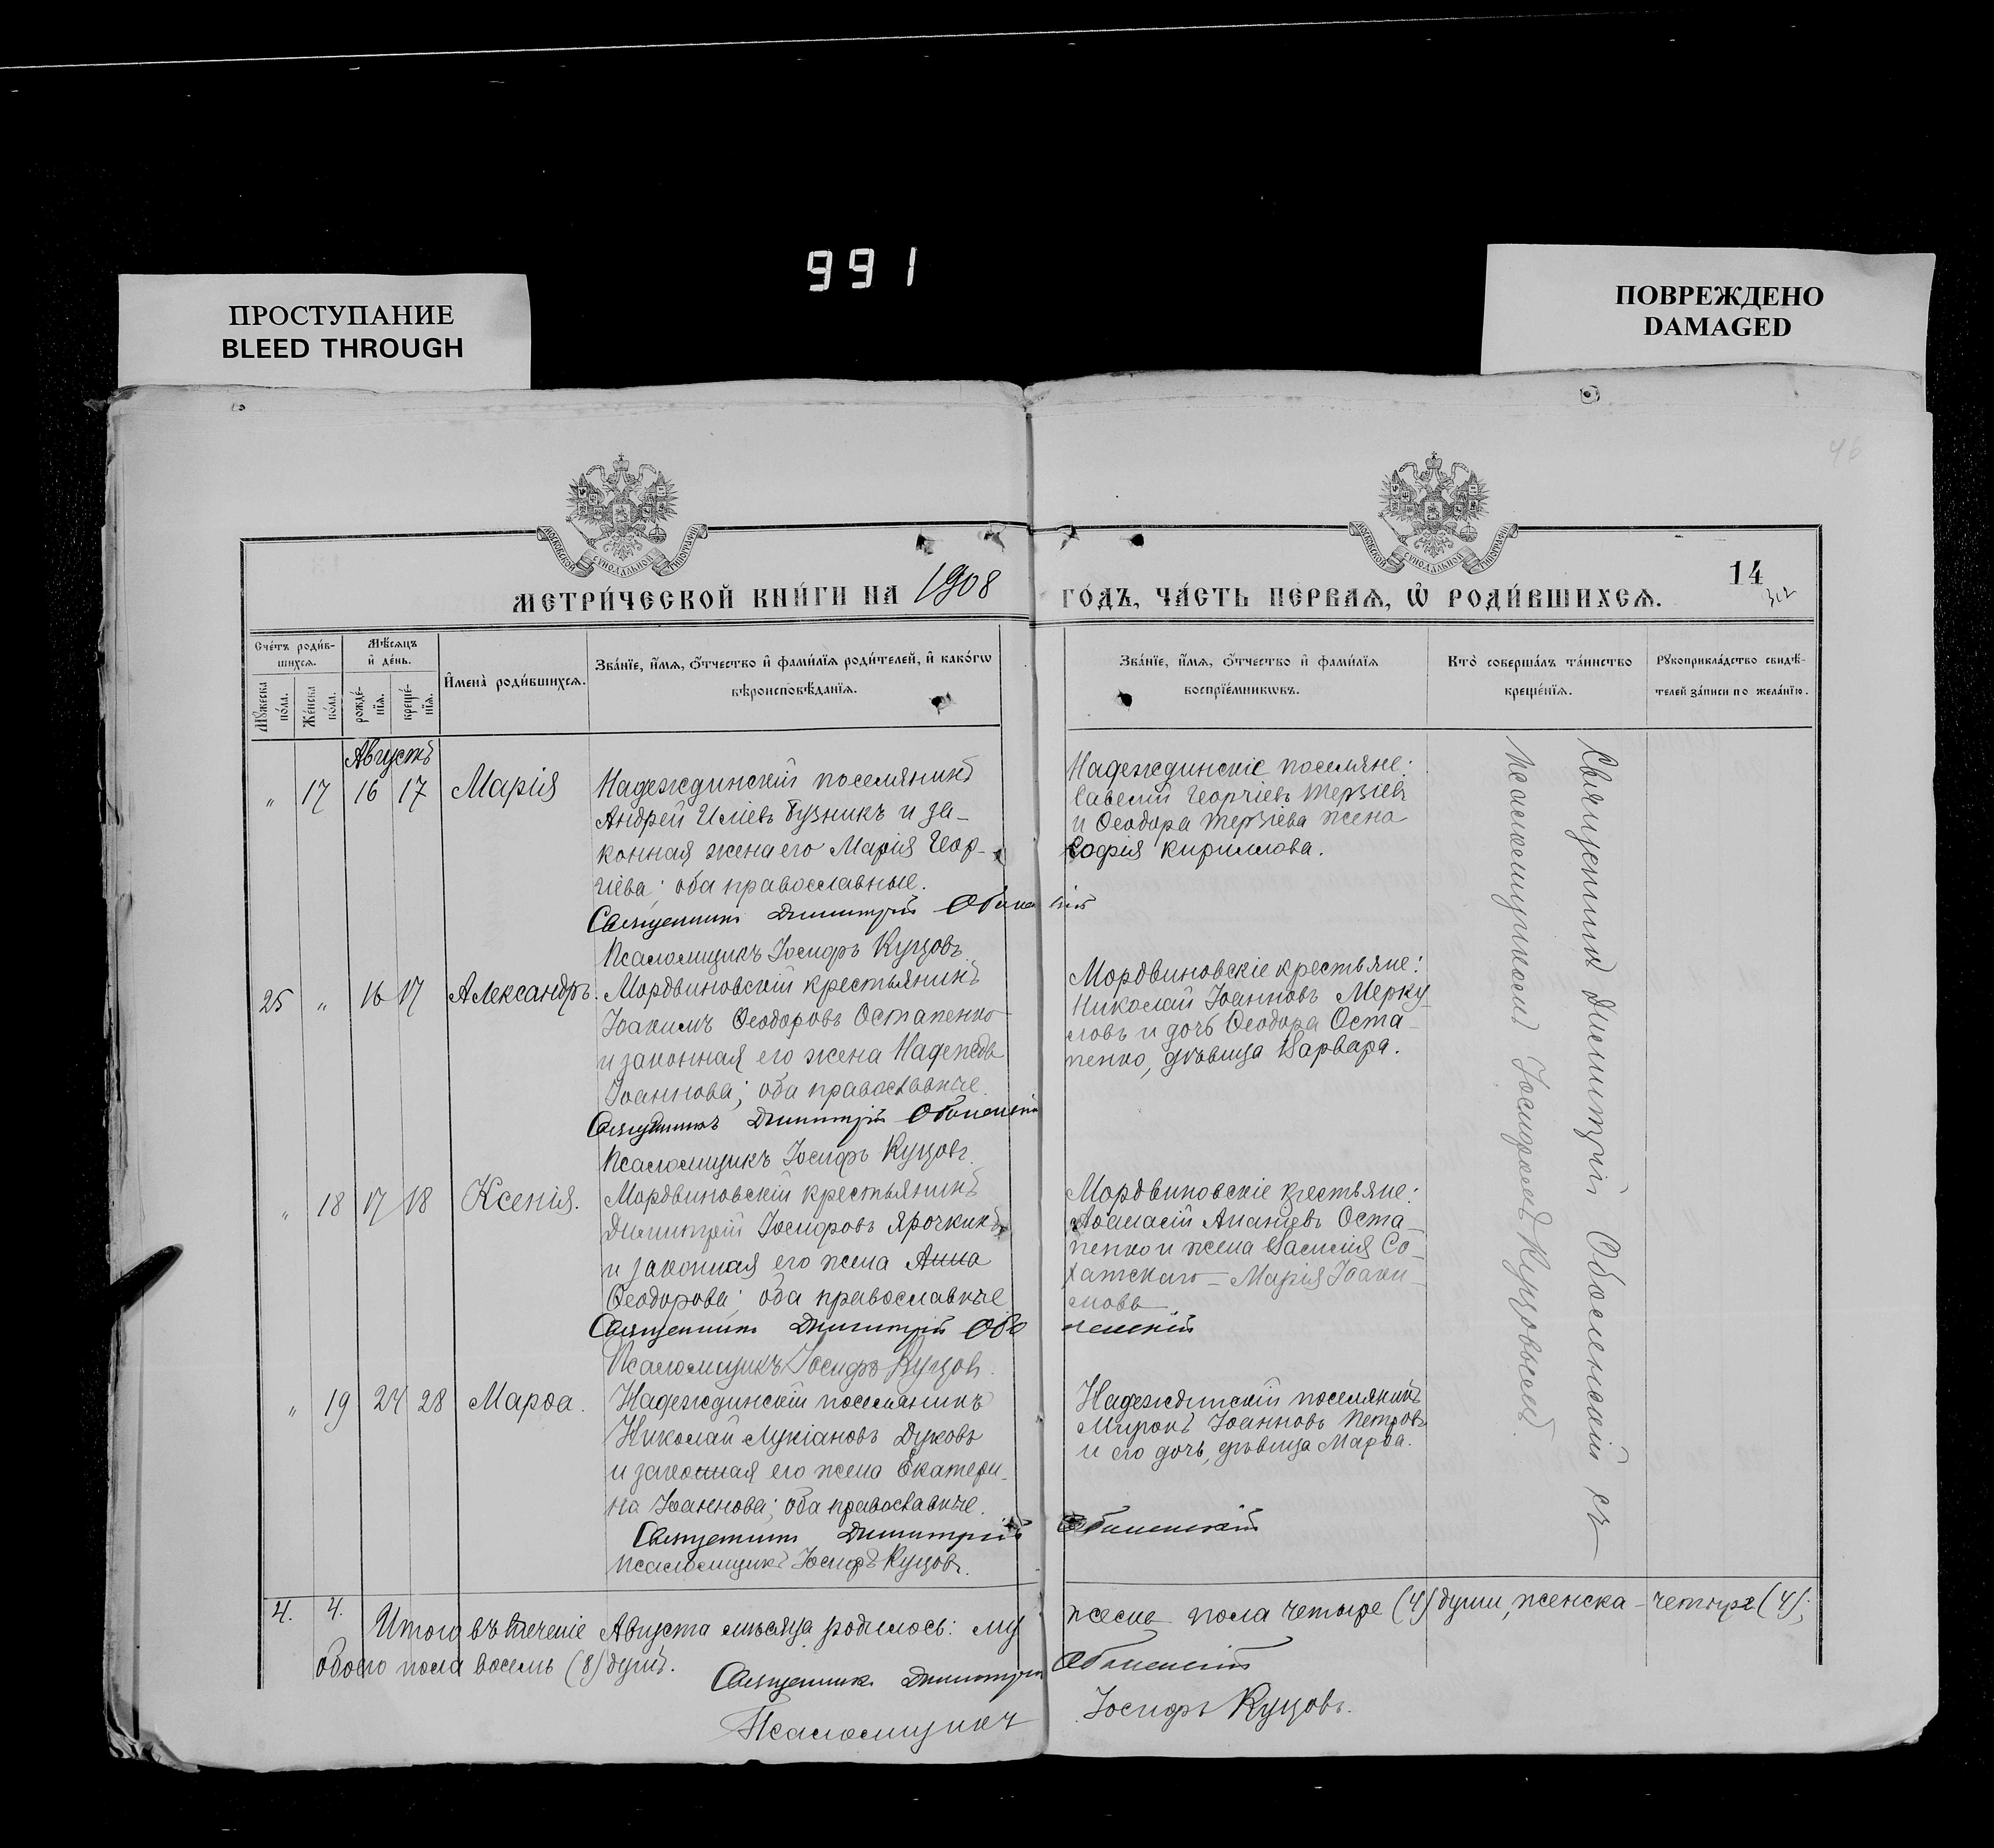 991
ПРОСТУПАНИЕ
BLEED THROUGH
ПОВРЕЖДЕНО
DAMAGED
46
МОСКОВСКОЙ СУНОДАЛЬНОЙ ТИПОГРАФІИ
МОСКОВСКОЙ СУНОДАЛЬНОЙ ТИПОГРАФІИ
МЕТРИ́ЧЕСКОЙ КНИ́ГИ НА 1908
ГО́ДЪ, ЧА́СТЬ ПЕРВАѦ, Ѡ РОДИ́ВШИХСѦ.
14
312
Сче́тъ роди́вшихсѧ.
Мꙋжеска по́ла.
Же́нска по́ла.
Мѣ́сѧцъ и де́нь.
рожде́нїѧ.
креще́нїѧ.
Имена̀ роди́вшихсѧ.
Зва́нїе, и́мѧ, о́тчество и фами́лїѧ роди́телей, и како́гѡ
вѣроисповѣ́данїѧ.
Зва́нїе, и́мѧ, о́тчество и фами́лїѧ
воспрїе́мникѡвъ.
Кто̀ соверша́лъ та́инство
креще́нїѧ.
Рꙋкоприкла́дство свидѣ́-
телей за́писи по жела́нїю.
Августъ
" 17 16 17 Марія
Надеждинскій поселянинъ
Андрей Иліевъ Бузникъ и за-
конная жена его Марія Геор-
гіева; оба православные.
Священникъ Димитрій
Псаломщикъ Іосифъ Куцовъ.
Надеждинскіе поселяне:
Савелій Георгіевъ Терзіевъ
и Ѳеодора Терзіева жена
Софія Кириллова.
25 " 16 17 Александръ.
Мордвиновскій крестьянинъ
Іоакимъ Ѳеодоровъ Остапенко
и законная его жена Надежда
Іоаннова; оба православные.
Священникъ Димитрій
Псаломщикъ Іосифъ Куцовъ.
Мордвиновскіе крестьяне:
Николай Іоанновъ Мерку-
ловъ и дочь Ѳеодора Оста-
пенко, дѣвица Варвара.
" 18 17 18 Ксенія.
Мордвиновскій крестьянинъ
Димитрій Іосифовъ Ярочкинъ
и законная его жена Анна
Ѳеодорова; оба православные
Священникъ Димитрій
Псаломщикъ Іосифъ Куцовъ.
Мордвиновскіе крестьяне:
Аѳанасій Ананіевъ Оста-
пенко и жена Василія Со-
хатскаго - Марія Іоаки-
мова
" 19 24 28 Марѳа.
Надеждинскій поселянинъ
Николай Лукіановъ Дуковъ
и законная его жена Екатери-
на Іоаннова; оба православные.
Священникъ Димитрій
Псаломщикъ Іосифъ Куцовъ.
Надеждинскій поселянинъ
Миронъ Іоанновъ Петровъ
и его дочь, дѣвица Марѳа.
Священникъ Димитрій съ
Псаломщикомъ Іосифомъ Куцовымъ.
4. 4.
Итого въ теченіе Августа мѣсяца родилось: му
жеска пола четыре (4) души, женска - четыре (4);
обоего пола восемь (8) душъ.
Священникъ Димитрій
Псаломщикъ Іосифъ Куцовъ.